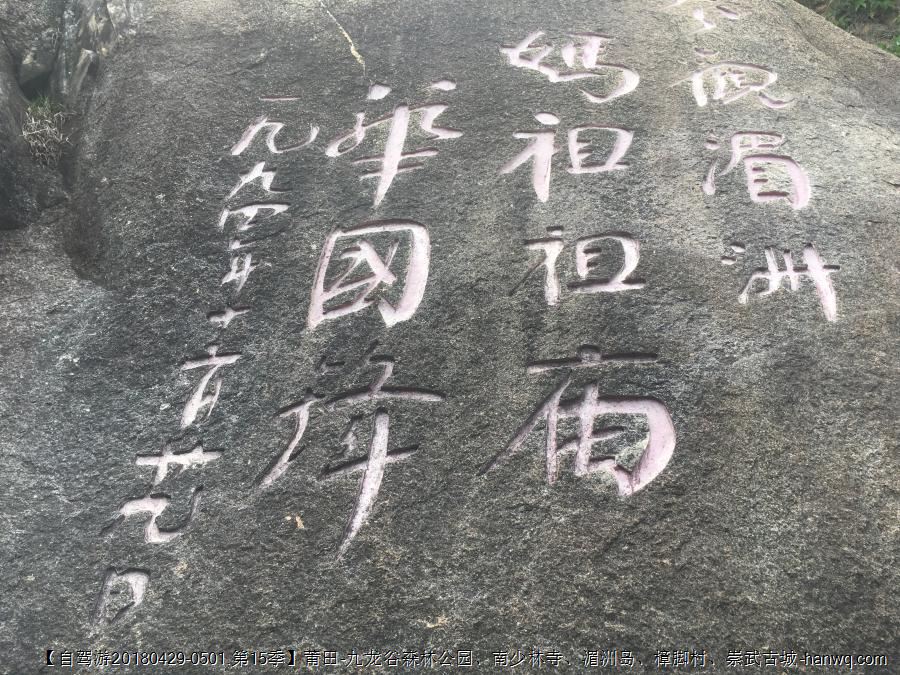 观湄洲
媽祖祖庙
華國鋒
一九九四年十一月廿九日
【自驾游20180429-0501 第15季】莆田-九龙谷森林公园、南少林寺、湄洲岛、樟脚村、崇武古城-hanwq.com